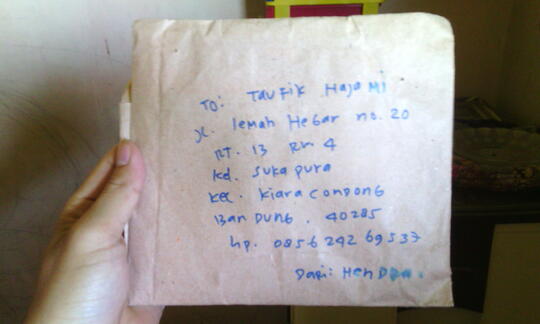 To: Taufik Hajami
Jl. lemah Hegar no. 20
RT. 13 RW 4
Kel. Sukapura
Kec. Kiaracondong
Bandung. 40285
hp. 0856 242 69537
Dari: Hendra.